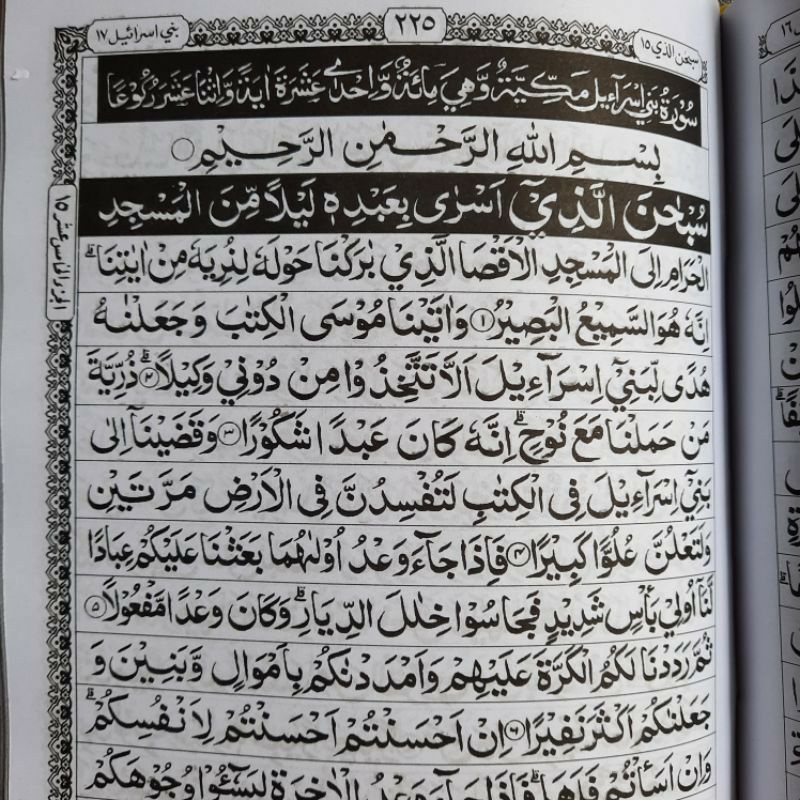 سبحن الذي ١٥
٢٢٥
بني اسرائيل ١٧
سُوْرَةُ بَنِيْٓ اِسْرَآءِيْلَ مَكِّيَّةٌ وَّهِيَ مِائَةٌ وَّاِحْدٰى عَشَرَةَ اٰيَةً وَّاثْنَا عَشَرَ رُكُوْعًا
بِسْمِ اللّٰهِ الرَّحْمٰنِ الرَّحِيْمِ ○
سُبْحٰنَ الَّذِيْٓ اَسْرٰى بِعَبْدِهٖ لَيْلًا مِّنَ الْمَسْجِدِ
الْحَرَامِ اِلَى الْمَسْجِدِ الْاَقْصَا الَّذِيْ بٰرَكْنَا حَوْلَهٗ لِنُرِيَهٗ مِنْ اٰيٰتِنَا ؕ
اِنَّهٗ هُوَ السَّمِيْعُ الْبَصِيْرُ ۝١ وَاٰتَيْنَا مُوْسَى الْكِتٰبَ وَجَعَلْنٰهُ
هُدًى لِّبَنِيْٓ اِسْرَآءِيْلَ اَلَّا تَتَّخِذُوْا مِنْ دُوْنِيْ وَكِيْلًا ؕ۝٢ ذُرِّيَّةَ
مَنْ حَمَلْنَا مَعَ نُوْحٍ ؕ اِنَّهٗ كَانَ عَبْدًا شَكُوْرًا ۝٣ وَقَضَيْنَآ اِلٰى
بَنِيْٓ اِسْرَآءِيْلَ فِى الْكِتٰبِ لَتُفْسِدُنَّ فِى الْاَرْضِ مَرَّتَيْنِ
وَلَتَعْلُنَّ عُلُوًّا كَبِيْرًا ۝٤ فَاِذَا جَآءَ وَعْدُ اُوْلٰىهُمَا بَعَثْنَا عَلَيْكُمْ عِبَادًا
لَّنَآ اُولِيْ بَاْسٍ شَدِيْدٍ فَجَاسُوْا خِلٰلَ الدِّيَارِ ؕ وَكَانَ وَعْدًا مَّفْعُوْلًا ۝٥
ثُمَّ رَدَدْنَا لَكُمُ الْكَرَّةَ عَلَيْهِمْ وَاَمْدَدْنٰكُمْ بِاَمْوَالٍ وَّبَنِيْنَ وَ
جَعَلْنٰكُمْ اَكْثَرَ نَفِيْرًا ۝٦ اِنْ اَحْسَنْتُمْ اَحْسَنْتُمْ لِاَنْفُسِكُمْ ؕ
وَاِنْ اَسَاْتُمْ فَلَهَا ؕ فَاِذَا جَآءَ وَعْدُ الْاٰخِرَةِ لِيَسُوْٓءٗا وُجُوْهَكُمْ
الجزء الخامس عشر ١٥